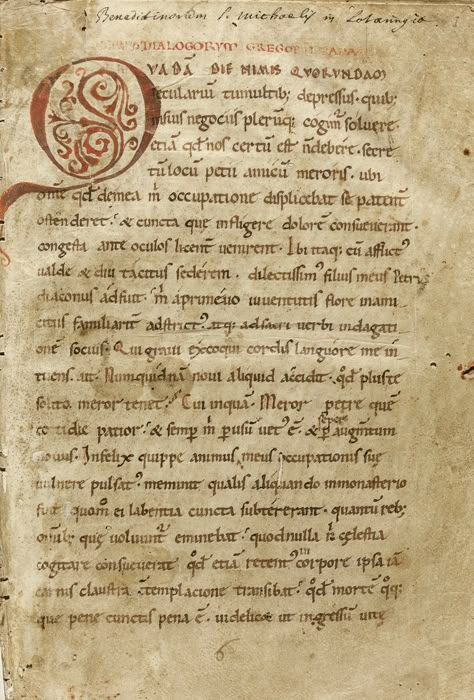 Benedictinorum S. Michaelis in Lotaringia
DIALOGORUM GREGORII
QUADĀ DIE NIMIS QUORUNDAM
seculariū tumultib; depressus. quib;
in suis negociis plerūq; cogim̄ solvere.
etiā qd nos certum est n̄ debere. secre
tū locū petii amicū meroris. ubi
om̄e qd de mea m̄ occupatione displicebat se patent̄
ostenderet. & cuncta que infligere dolorē consueverant.
congesta ante oculos licent̄ venirent. Ibi itaq; cū afflict᾿
valde & diu tacitus sederem. dilectissim᾿ filius meus Petrus
diaconus adfuit. m̄ a primevo iuventutis flore in ami
citiis familiarit̄ adstrict᾿. atq; ad sacri verbi indagati
onē socius. Qui gravi excoqui cordis languore me in
tuens. ait. Numquidnā novi aliquid accidit. qd plus te
solito meror tenet. Cui inquā. Meror petre quē
cotidie patior. & semp̄ m̄ p usū vet᾿ ē. & sēper p augm̄tum
novus. Infelix quippe animus meus occupationis sue
vulnere pulsat᾿ meminit qualis aliquando in monasterio
fuit. quom̄ ei labentia cuncta subter erant. quantū reb;
omib; que volvunt̄ eminebat. quod nulla n̄ celestia
cogitare consueverat. qd etiā retent᾿ corpore ipsa iā
carnis claustra. templacione transibat. qd morte q̄q;
que pene cunctis pena ē. videlicet ut ingressū vite
6